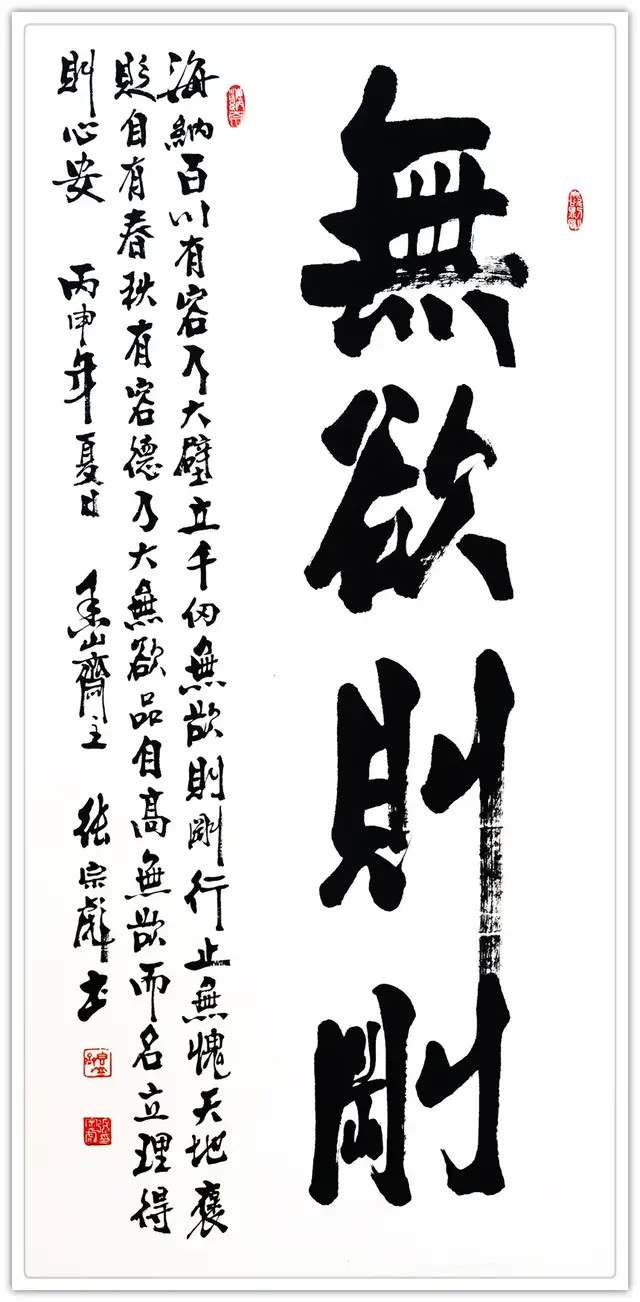 無欲則剛
海納百川有容乃大壁立千仞無欲則剛行止無愧天地褒
貶自有春秋有容德乃大無欲品自高無欲而名立理得
則心安 丙申年夏日 山齋主 張宗彪书